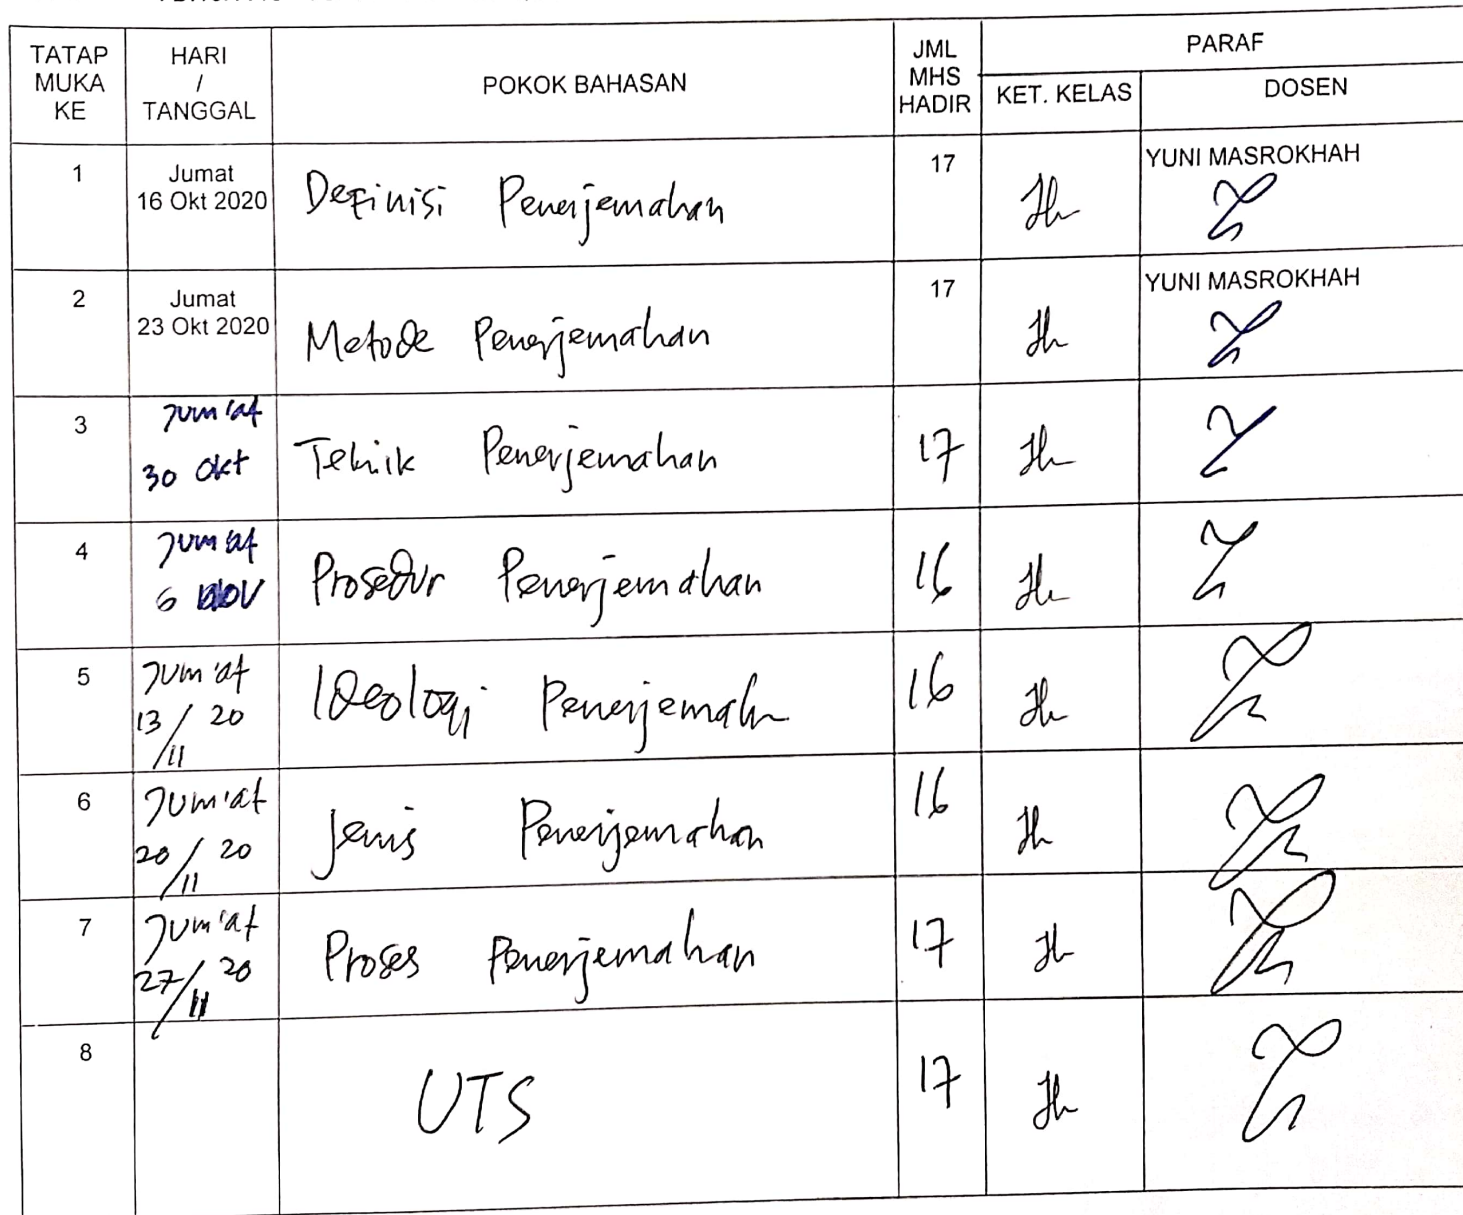 TATAP MUKA KE
HARI / TANGGAL
POKOK BAHASAN
JML MHS HADIR
PARAF
KET. KELAS
DOSEN
1
Jumat
16 Okt 2020
Definisi Penerjemahan
17
YUNI MASROKHAH
2
Jumat
23 Okt 2020
Metode Penerjemahan
17
YUNI MASROKHAH
3
Jum'at
30 Okt
Teknik Penerjemahan
17
4
Jum'at
6 NOV
Prosedur Penerjemahan
16
5
Jum'at
13/11 20
Ideologi Penerjemahn
16
6
Jum'at
20/11 20
Jenis Penerjemahan
16
7
Jum'at
27/11 20
Proses Penerjemahan
17
8
UTS
17